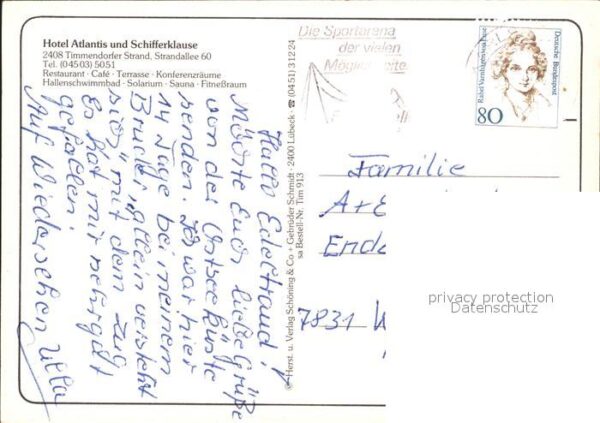 Hotel Atlantis und Schifferklause
2408 Timmendorfer Strand, Strandallee 60
Tel. (04503) 5051
Restaurant · Café · Terrasse · Konferenzräume
Hallenschwimmbad · Solarium · Sauna · Fitneßraum
Die Sportarena
der vielen
Deutsche Bundespost
Rahel Varnhagen von Ense
80
Hallo Edeltraud!
Möchte Euch liebe Grüße
von der Ostseeküste
senden. Ich war hier
14 Tage bei meinem
Bruder, allein versteht
sich" mit dem Zug
Es hat mir sehr gut
gefallen.
Auf Wiedersehen Ulla
© Herst. u. Verlag Schöning & Co + Gebrüder Schmidt · 2400 Lübeck · ☎ (0451) 31224
sa Bestell-Nr. Tim 913
Familie
A+E
Ende
7831 W
privacy protection
Datenschutz